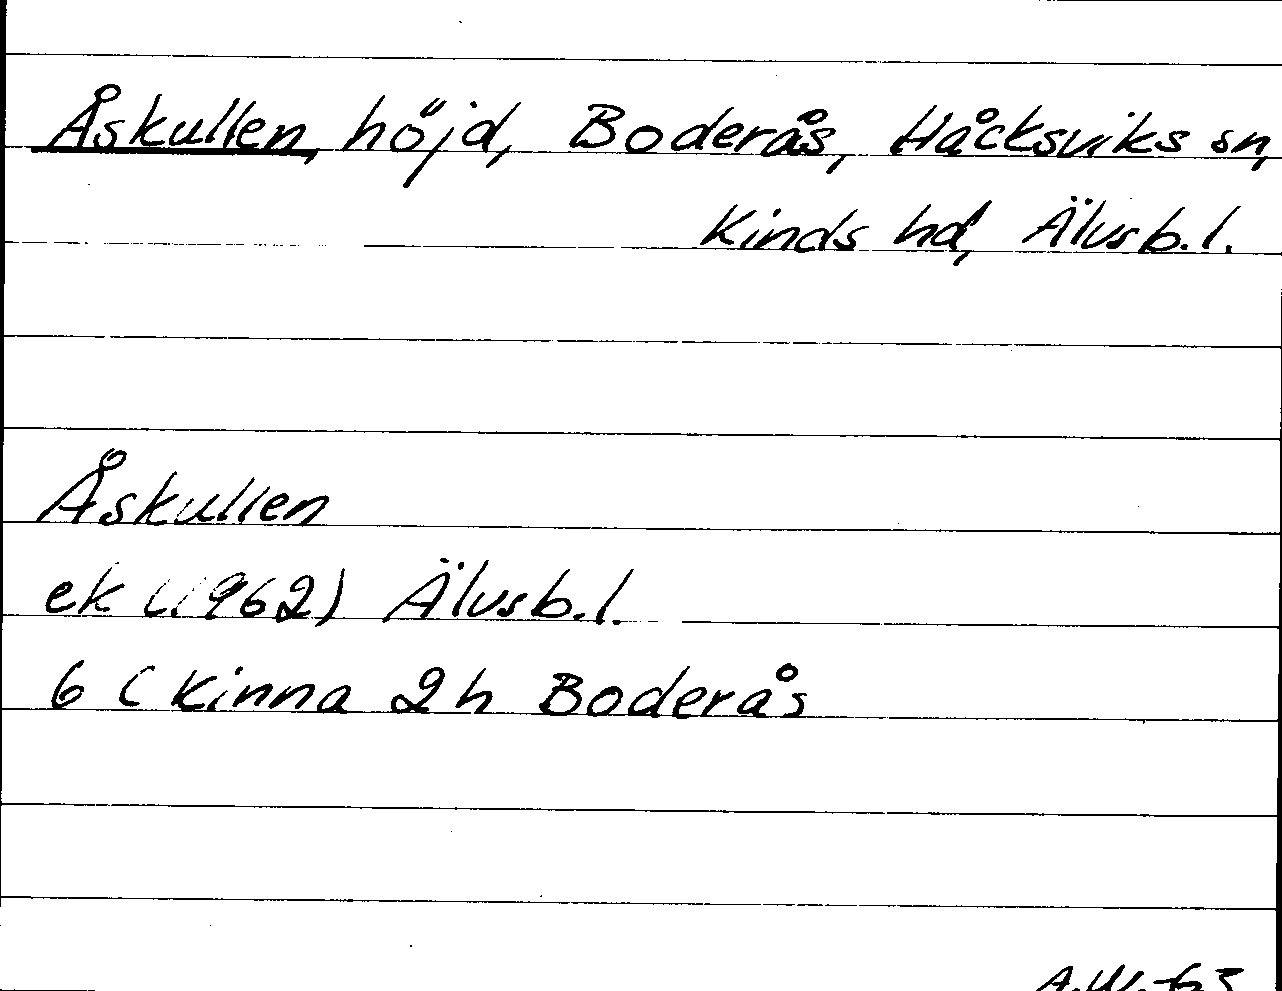 Åskullen, höjd, Boderås, Håcksviks sn,
Kinds hd, Älvsb.l.
Åskullen
ek (1962) Älvsb.l.
6 C Kinna 2 h Boderås